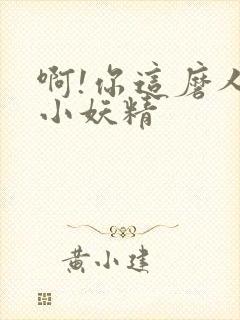 啊!你這磨人
小妖精
黃小建